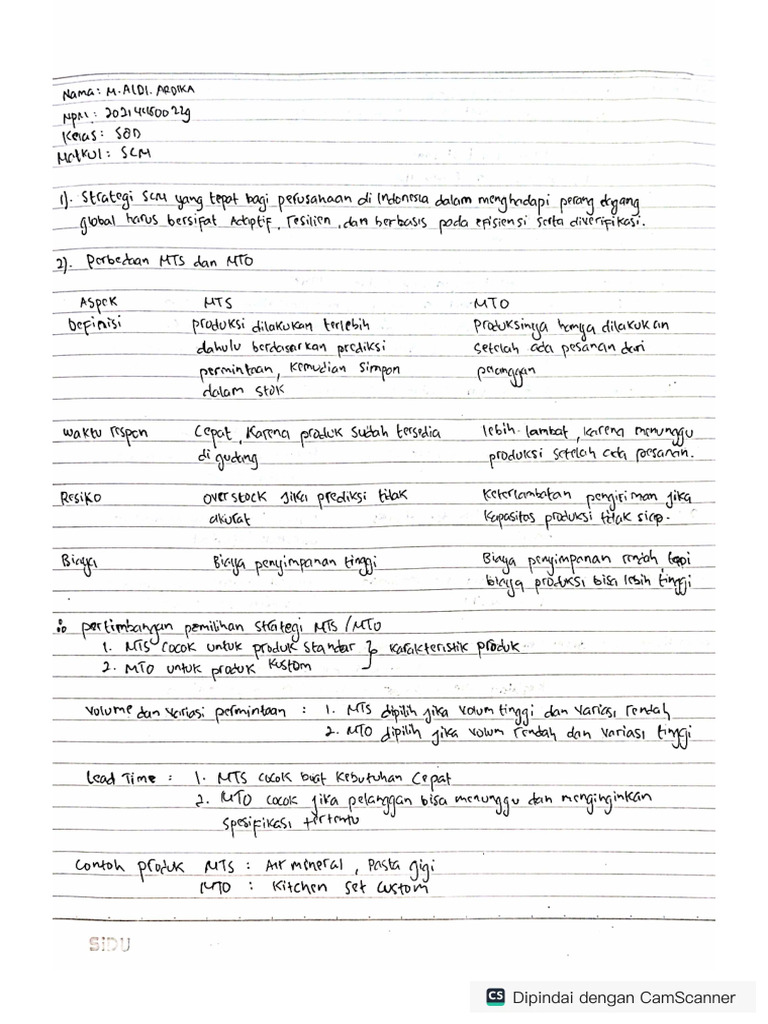 Nama : M. ALDI. ARDIKA
NPM : 202144500229
Kelas : S8D
Matkul : SCM
1). Strategi SCM yang tepat bagi perusahaan di Indonesia dalam menghadapi perang dagang
global harus bersifat Adaptif, resilien, dan berbasis pada efisiensi serta diverifikasi.
2). Perbedaan MTS dan MTO
Aspek MTS MTO
Definisi produksi dilakukan terlebih Produksinya hanya dilakukan
dahulu berdasarkan prediksi setelah ada pesanan dari
permintaan, kemudian simpan pelanggan
dalam stok
Waktu respon Cepat, karena produk sudah tersedia lebih lambat, karena menunggu
di gudang produksi setelah ada pesanan.
Resiko overstock jika prediksi tidak Keterlambatan pengiriman jika
akurat kapasitas produksi tidak siap.
Biaya Biaya penyimpanan tinggi Biaya penyimpanan rendah, tapi
biaya produksi bisa lebih tinggi
pertimbangan pemilihan strategi MTS / MTO
1. MTS cocok untuk produk standar } karakteristik produk
2. MTO untuk produk kustom
Volume dan variasi permintaan : 1. MTS dipilih jika volum tinggi dan variasi rendah
2. MTO dipilih jika volum rendah dan variasi tinggi
Lead Time : 1. MTS cocok buat kebutuhan cepat
2. MTO cocok jika pelanggan bisa menunggu dan menginginkan
spesifikasi tertentu
Contoh produk MTS : Air mineral, Pasta gigi
MTO : Kitchen set custom
SiDU
CS Dipindai dengan CamScanner